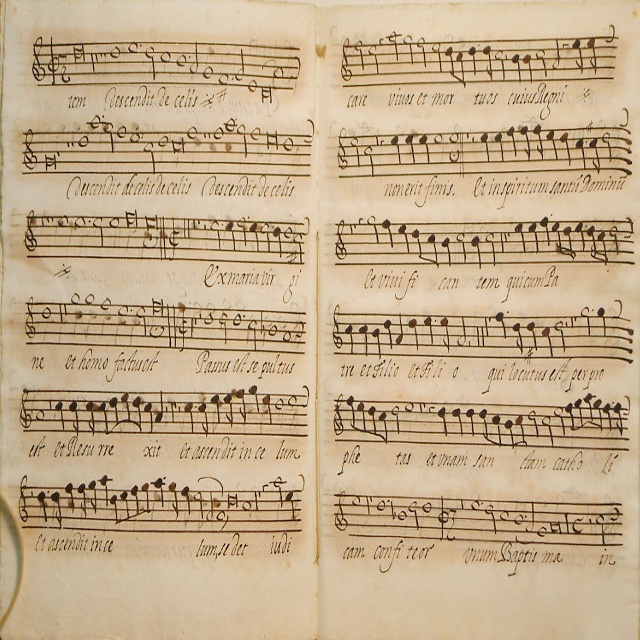 tem Descendit de celis
Descendit de celis de celis Descendit de celis
Ex maria vir gi
ne et homo factus est Passus et se pultus
est et Resu rre xit et ascendit in ce lum
et ascendit in ce lum, se det iudi
care vivos et mor tuos cuius Regni
non erit finis. Et in spiritum santū Dominū
Et vivi fi can tem qui cum Pa
tre et Filio et Fi li o qui locutus est, per pro
phe tas et unam san ctam catho li
cam confi teor unum Baptis ma in